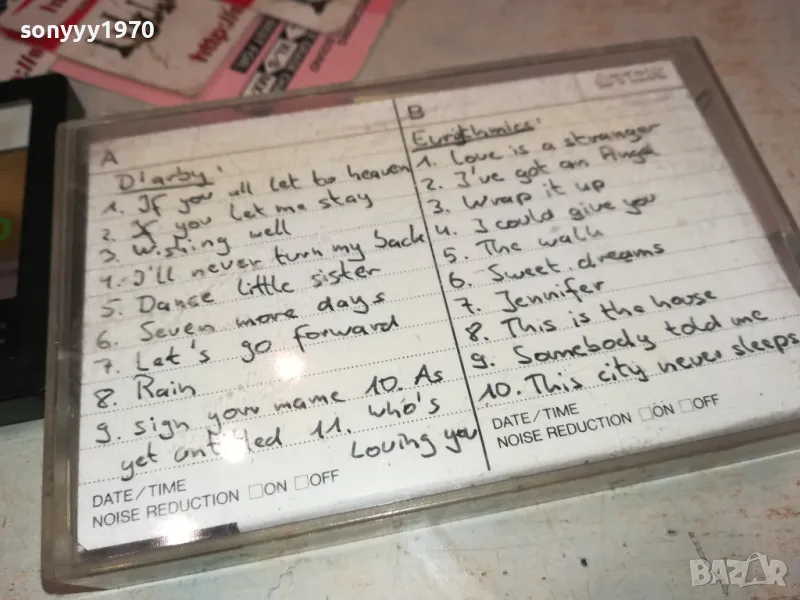 sonyyy1970
http:/
TDK
A
D'arby'
1. If you all let to heaven
2. If you let me stay
3. Wishing well
4. I'll never turn my back
5. Danse little sister
6. Seven more days
7. Let's go forward
8. Rain
9. sign your name 10. As
yet untitled 11. Who's
Loving you
DATE/TIME
NOISE REDUCTION □ON □OFF
B
Eurythmics'
1. Love is a stranger
2. I've got an Angel
3. Wrap it up
4. I could give you
5. The walk
6. Sweet dreams
7. Jennifer
8. This is the house
9. Somebody told me
10. This city never sleeps
DATE/TIME
NOISE REDUCTION □ON □OFF
BAZAR